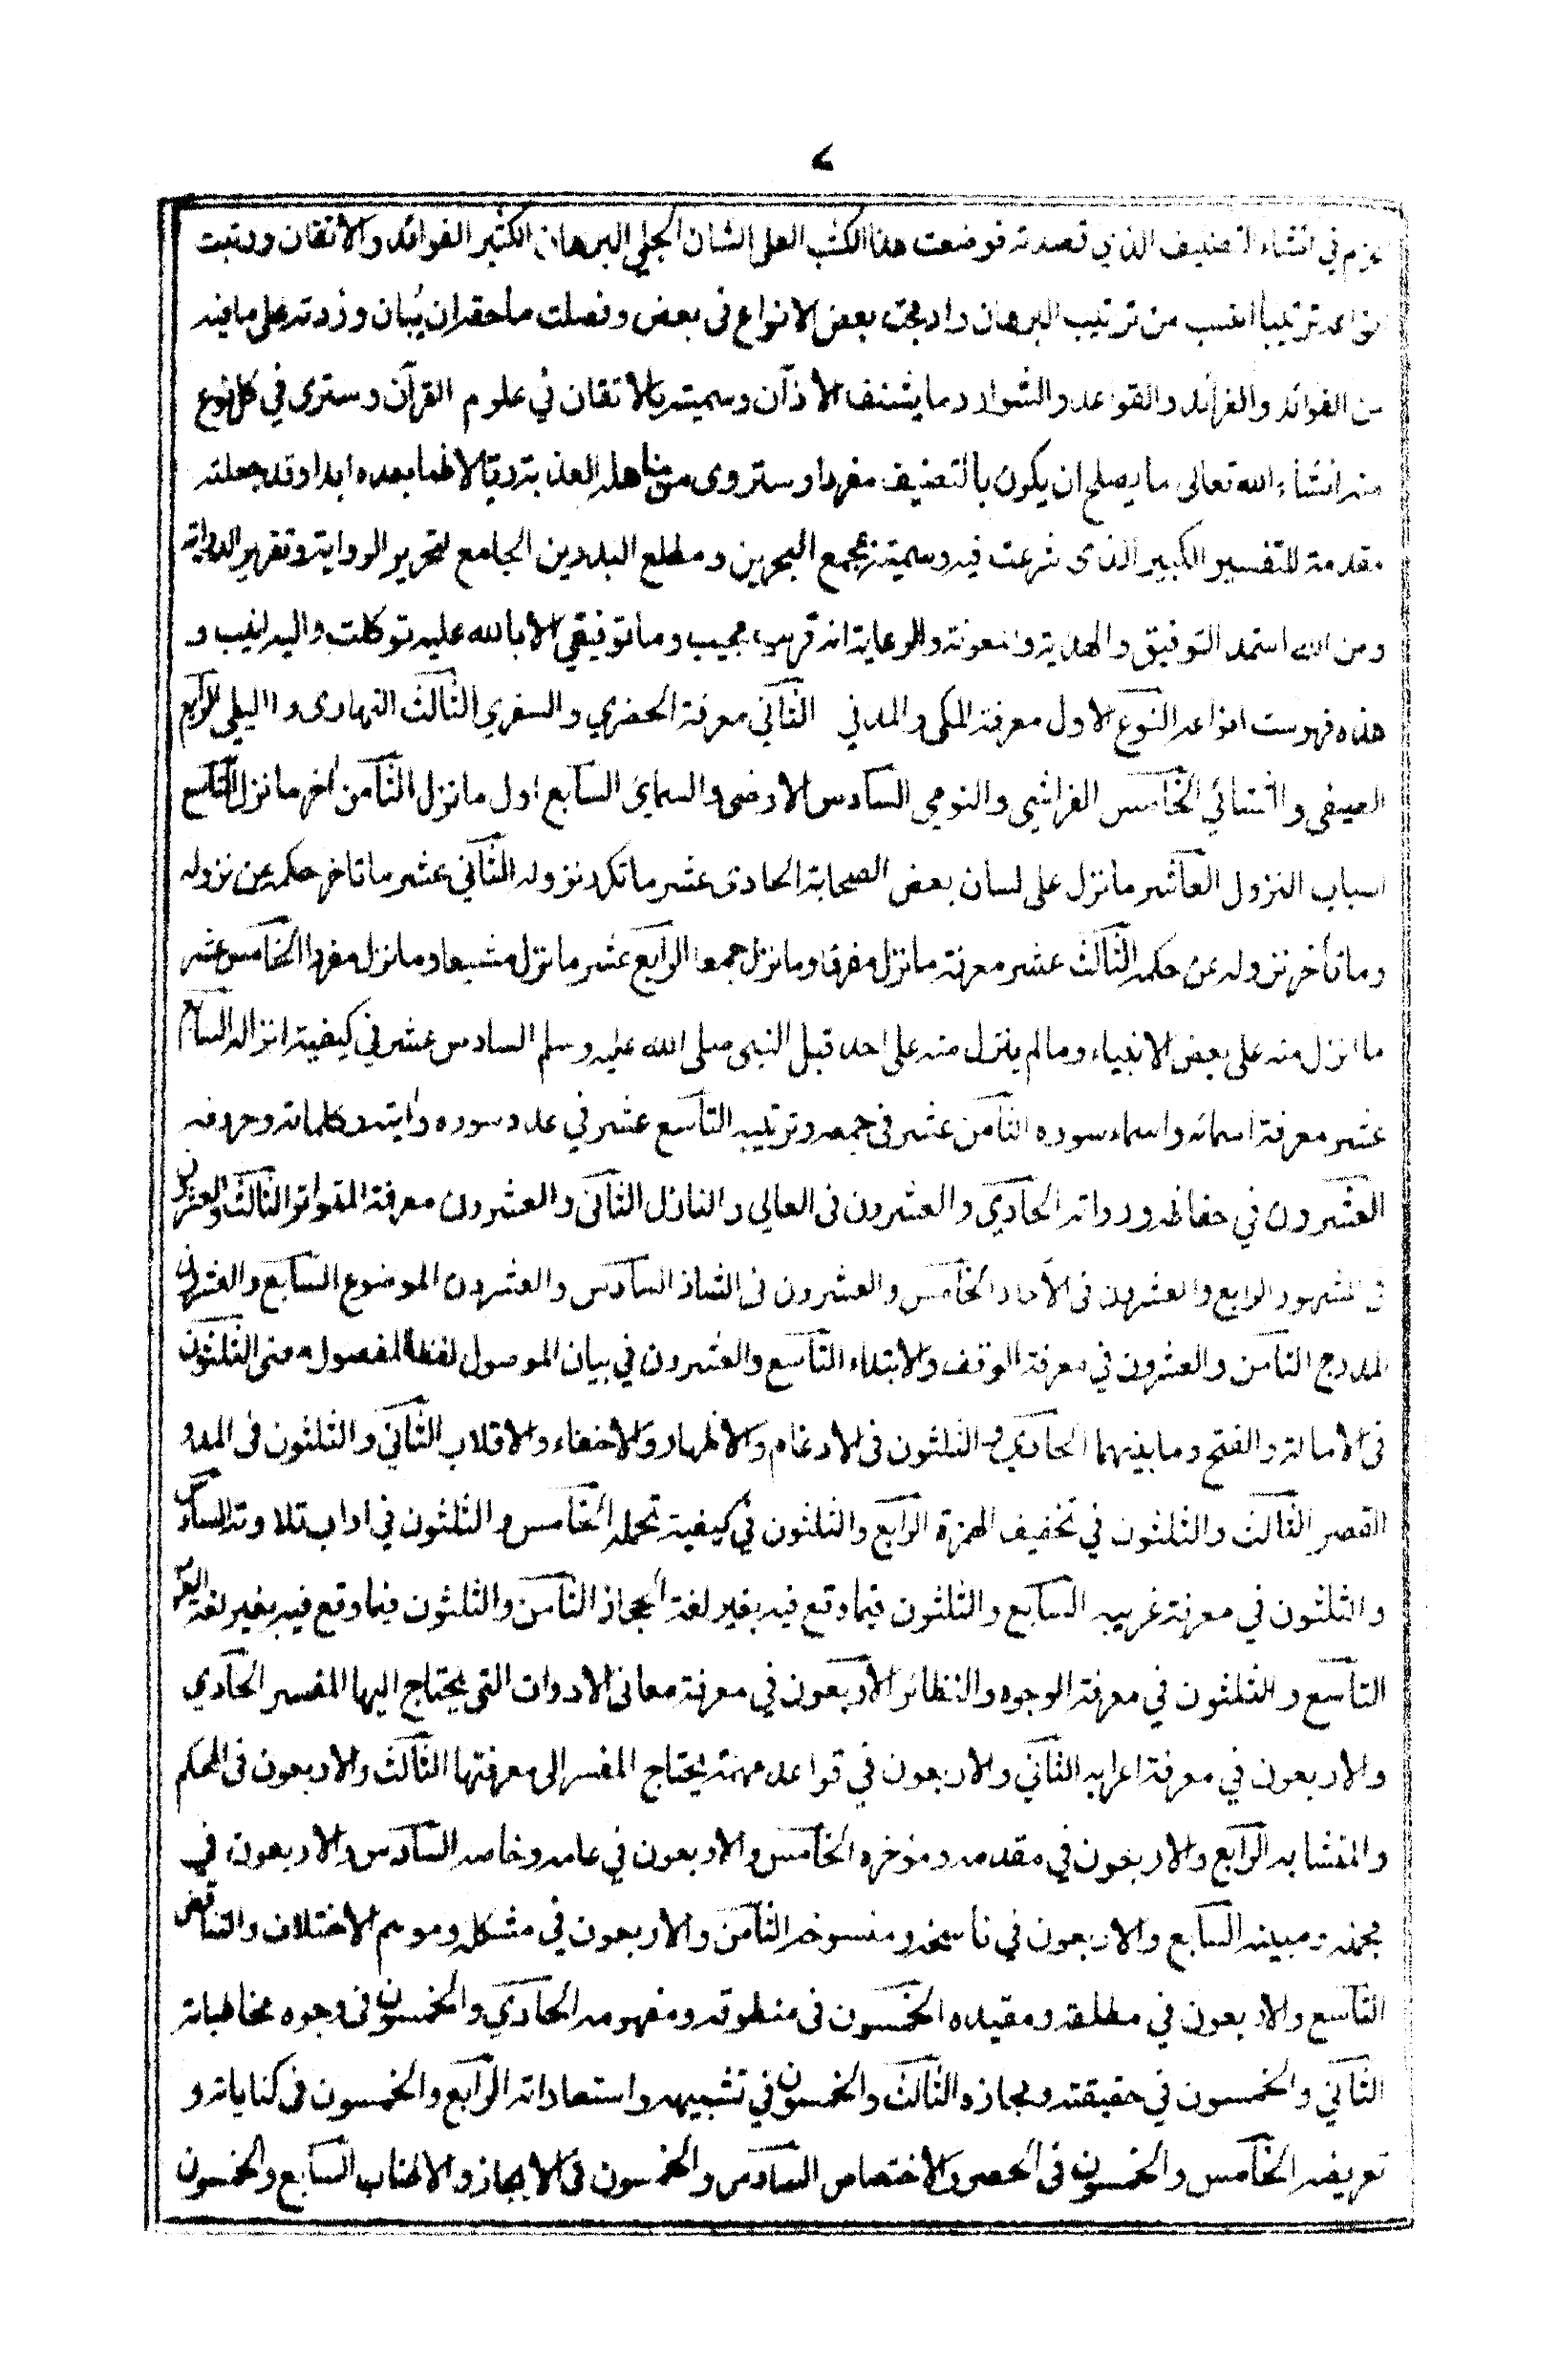 ٧
عزم في انشاء التصنيف الذي قصدته فوضعت هذا الكتب العلى الشان الجلي البرهان الكثير الفوائد والأتقان ورتبت
انواعه ترتيبا انسب من ترتيب البرهان وادمجت بعض الانواع في بعض وفصلت ما حقه ان يُبان وزدته على ما فيه
من الفوائد والفرائد والقواعد والشوارد ما يشنف الأذآن وسميته بالاتقان في علوم القرآن وسترى في كل نوع
منه انشاء الله تعالى ما يصلح ان يكون بالتصنيف مفردا وستروى من مناهله العذبة ريا لا ظما بعده ابدا وقد جعلته
مقدمة للتفسير الكبير الذى شرعت فيه وسميته بمجمع البحرين ومطلع البدرين الجامع لتحرير الرواية وتقرير الدراية
ومن الله استمد التوفيق والهداية والمعونة والرعاية انه قريب مجيب وما توفيقي الا بالله عليه توكلت واليه انيب و
هذه فهرست انواعه النوع الاول معرفة المكى والمدني الثاني معرفة الحضري والسفري الثالث النهارى والليلي الرابع
الصيفى والشتائي الخامس الفراشي والنومي السادس الارضى والسمائ السابع اول ما نزل الثامن أخر ما نزل التاسع
اسباب النزول العاشر ما نزل على لسان بعض الصحابة الحادى عشر ما تكرر نزوله الثاني عشر ما تاخر حكمه عن نزوله
وما تأخر نزوله عن حكمه الثالث عشر معرفة ما نزل مفرقا وما نزل جمعا الرابع عشر ما نزل مشيعا وما نزل مفردا الخامس عشر
ما انزل منه على بعض الانبياء وما لم ينزل منه على احد قبل النبى صلى الله عليه وسلم السادس عشر في كيفية انزاله السابع
عشر معرفة اسمائه واسماء سوره الثامن عشر فى جمعه وترتيبه التاسع عشر في عدد سوره وأيته وكلماته وحروفه
العشرون في حفاظه ورواته الحادي والعشرون فى العالي والنازل الثاني والعشرون معرفة المتواتر الثالث والعشرون
فى المشهور الرابع والعشرون فى الآحاد الخامس والعشرون فى الشاذ السادس والعشرون الموضوع السابع والعشرون
المدرج الثامن والعشرون في معرفة الوقف والابتداء التاسع والعشرون في بيان الموصول لفظا المفصول معنى الثلثون
فى الامالة والفتح وما بينهما الحادي والثلثون فى الأدغام والأظهار والأخفاء والاقلاب الثاني والثلثون فى المد و
القصر الثالث والثلثون في تخفيف الهمزة الرابع والثلثون في كيفية تحمله الخامس والثلثون في اداب تلاوته السادس
والثلثون في معرفة غريبه السابع والثلثون فيما وقع فيه بغير لغة الحجاز الثامن والثلثون فيما وقع فيه بغير لغة العرب
التاسع والثلثون في معرفة الوجوه والنظائر الأربعون في معرفة معانى الادوات التى يحتاج اليها المفسر الحادي
والأربعون في معرفة اعرابه الثاني والاربعون في قواعد مهمة يحتاج المفسر الى معرفتها الثالث والأربعون فى المحكم
والمتشابه الرابع والاربعون في مقدمه ومؤخره الخامس والاربعون في عامه وخاصه السادس والاربعون في
مجمله ومبينه السابع والاربعون في ناسخه ومنسوخه الثامن والأربعون في مشكله وموهم الأختلاف والتناقض
التاسع والاربعون في مطلقه ومقيده الخمسون فى منطوقه ومفهومه الحادي والخمسون فى وجوه مخاطباته
الثاني والخمسون في حقيقته ومجازه الثالث والخمسون في تشبيهه واستعاراته الرابع والخمسون فى كناياته و
تعريضه الخامس والخمسون فى الحصر والأختصاص السادس والخمسون فى الايجاز والاطناب السابع والخمسون